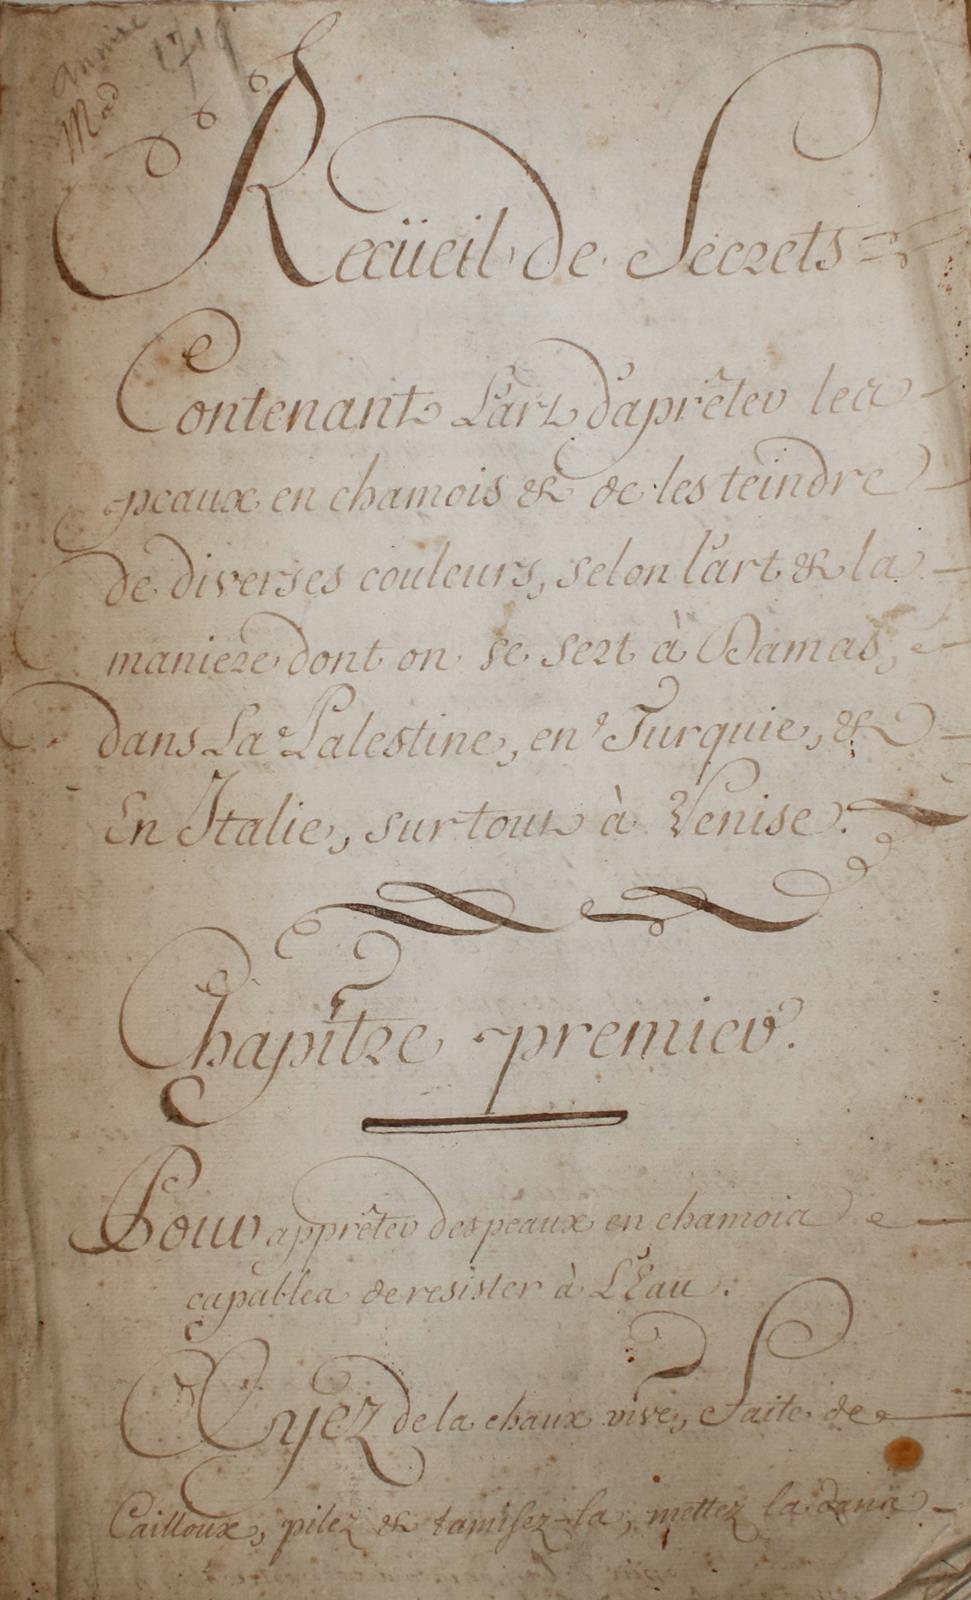 Année 1719
Mad
Recüeil de Secrets
Contenant L'art d'aprêter les
peaux en chamois & de les teindre
de diverses couleurs, selon l'art & la
maniere dont on se sert à Damas,
dans La Palestine, en Turquie, &
En Italie, surtout à Venise.
Chapître premier.
Pour apprêter des peaux en chamois
capables de resister à L'Eau.
Ayez de la chaux vive, faite de
Cailloux, pilez & tamisez-la, mettez la dans